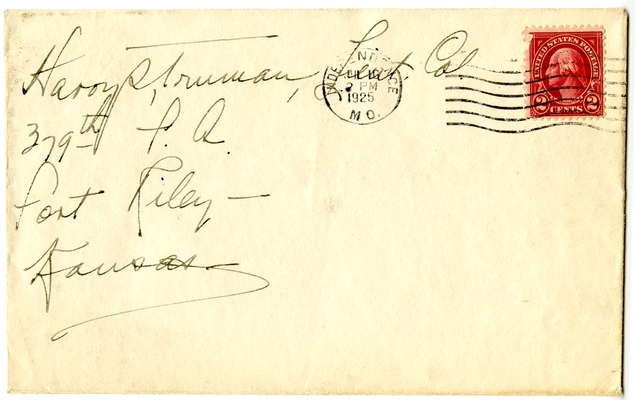 Harry S. Truman, Lieut. Col.
379th F. A.
Fort Riley —
Kansas
INDEPENDENCE
3 PM
1925
MO.
UNITED STATES POSTAGE
2 CENTS 2